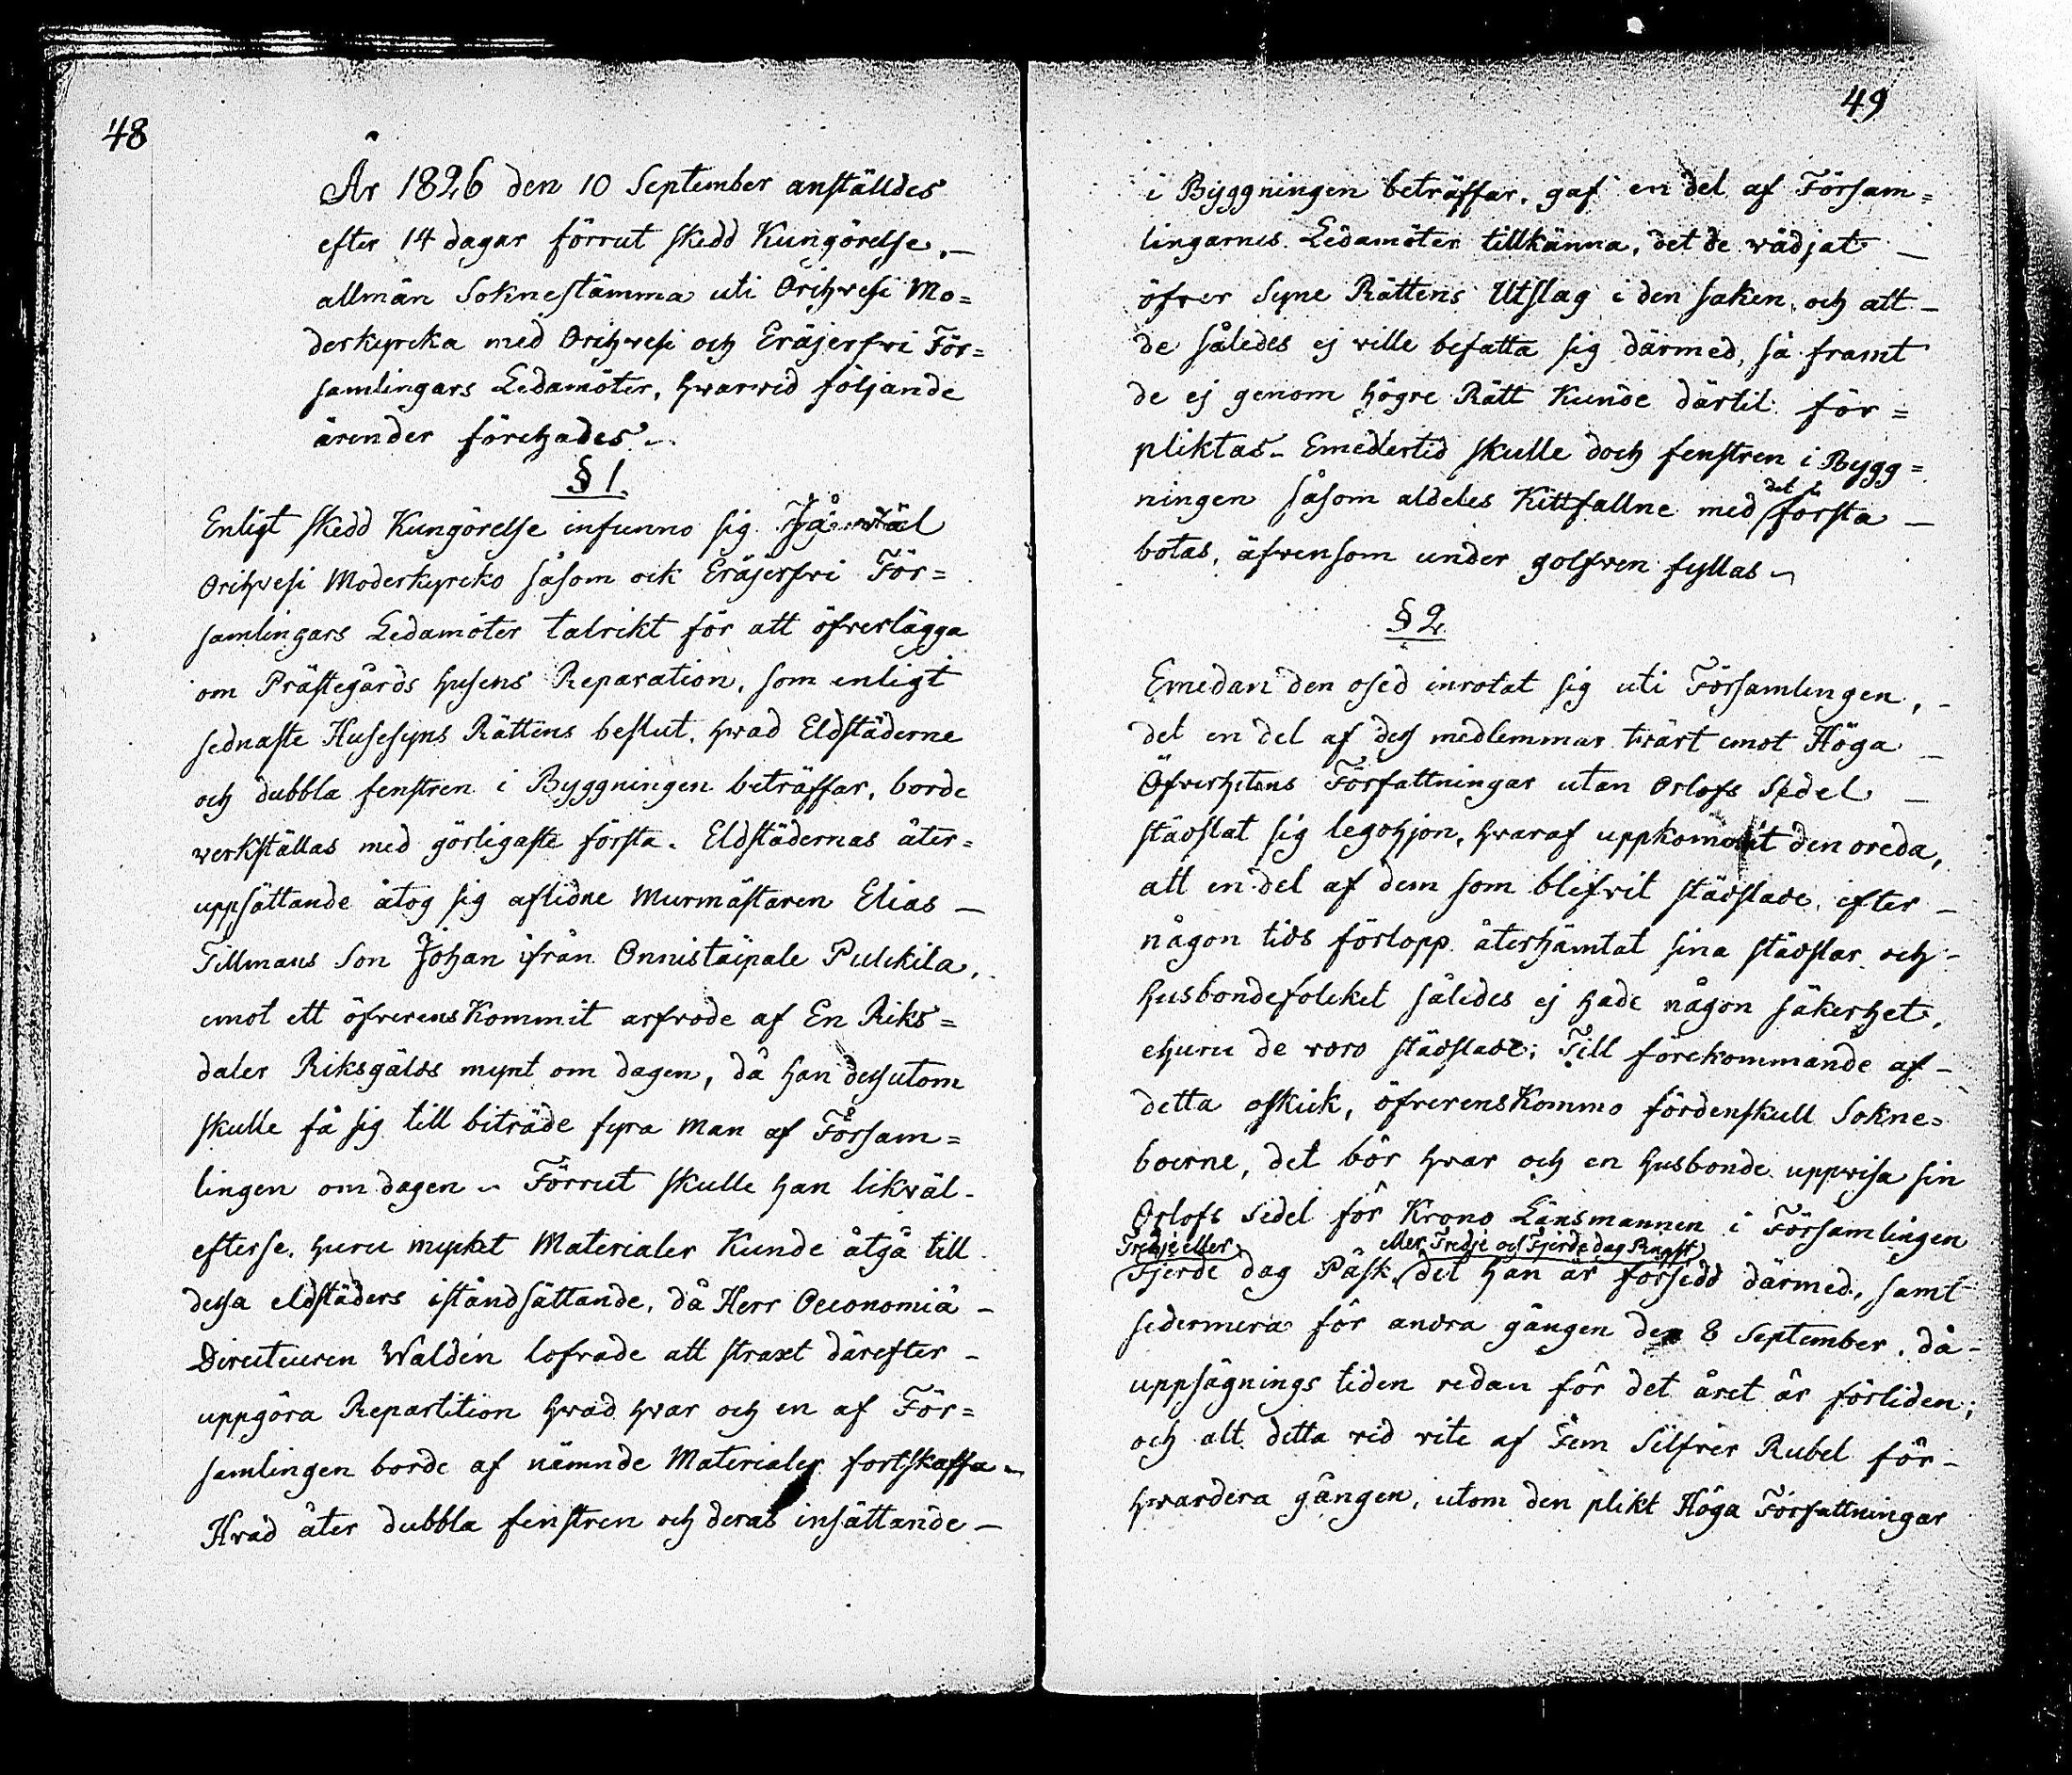 48
År 1826 den 10 September anställdes
efter 14 dagar förrut skedd Kungörelse, —
allmän Soknestämma uti Orihvesi Mo=
derkyrcka med Orihvesi och Eräjerfvi För=
samlingars Ledamöter, hvarvid följande
ärender förehades.
§ 1.
Enligt skedd Kungörelse infunno sig Så väl
Orihvesi Moderkyrcko såsom ock Eräjerfvi För=
samlingars Ledamöter talrikt för att öfverlägga
om Prästegårds husens Reparation, som enligt
sednaste Husesyns Rättens beslut, hvad Eldstäderne
och dubbla fenstren i Byggningen beträffar, borde
verkställas med görligaste första. Eldstädernas åter=
uppsättande åtog sig aflidne Murmästaren Elias —
Tillmans Son Johan ifrån Onnistaipale Pulckila,
emot ett öfverensKommit arfvode af En Riks=
daler Riksgälds mynt om dagen, då han dessutom
skulle få sig till biträde fyra Man af Försam=
lingen om dagen. Förrut skulle han likväl-
efterse, huru mycket Materialer Kunde åtgå till
dessa eldstäders iståndsättande, då Herr Oeconomiä -
Directeuren Waldén lofvade att straxt därefter -
uppgöra Repartition hvad hvar och en af För=
samlingen borde af nämnde Materialer fortskaffa
Hvad åter dubbla fenstren och deras insättande —
49
i Byggningen beträffar, gaf en del af Försam=
lingarnes Ledamöter tillkänna, det de vädjat —
öfver Syne Rättens Utslag i den saken, och att —
de således ej ville befatta sig därmed, så framt
de ej genom högre Rätt Kunde därtil för=
pliktas. Emedlertid skulle doch fenstren i Bygg=
ningen såsom aldeles Kittfallne med det första —
botas, äfvensom under golfven fyllas
§ 2.
Emedan den osed inrotat sig uti Församlingen, -
det en del af dess medlemmar tvärt emot Höga —
Öfverhetens Författningar utan Orlofs Sedel —
städslat sig legohjon, hvaraf uppkommit den oreda,
att en del af dem som blefvit städslade, efter —
någon tids förlopp återhämtat sina städslar och -
husbondefolcket således ej hade någon säkerhet,
ehuru de voro städslade; Till förekommande af -
detta oskick, öfverensKommo fördenskull Sokne=
boerne, det bör hvar och en husbonde uppvisa sin
Orlofs Sedel för Krono Länsmannen i Församlingen
Tredje eller eller Tredje och Fjerde dag Pingst
Fjerde dag Påsk, det han är försedd därmed, samt
sedermera för andra gången den 8 September, då -
uppsägnings tiden redan för det året är förliden;
och alt detta vid vite af Fem Silfver Rubel för -
hvardera gången, utom den plikt Höga Författningar